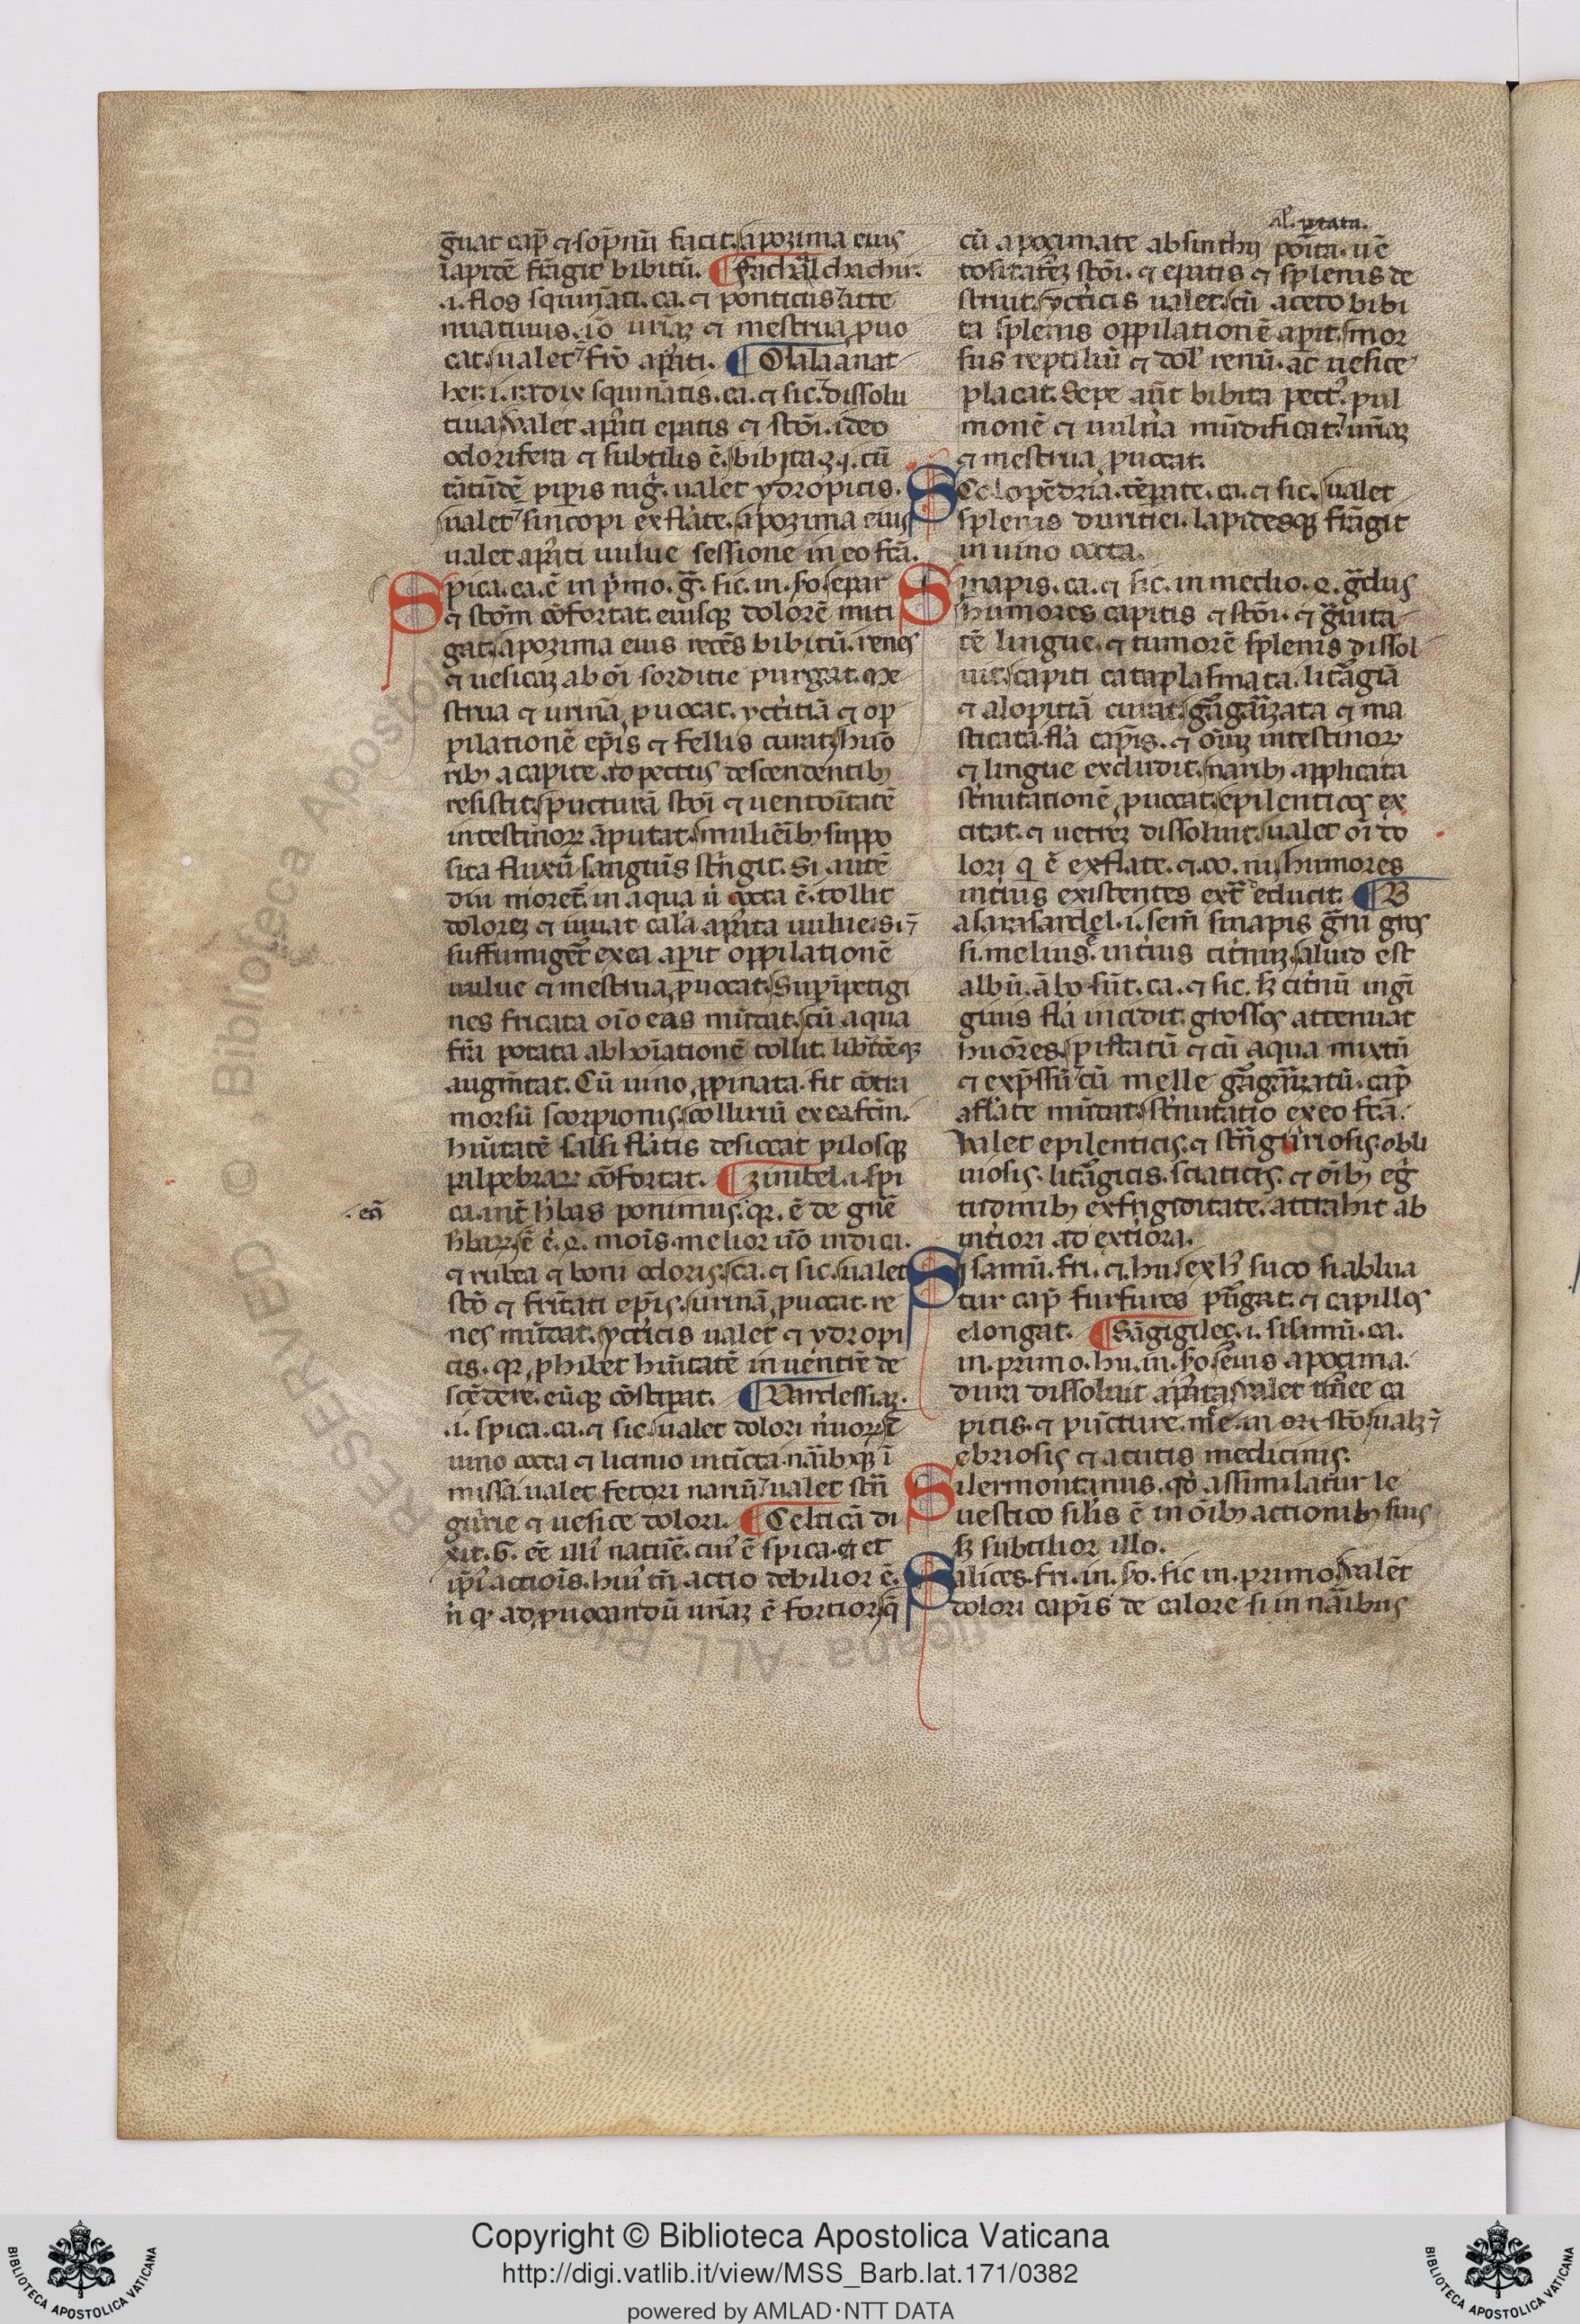 g̃uat cap̃ ⁊ sop̃nũ facit. apozima eius
lapidẽ frãgit bibitũ. ¶ fachal chachir.
.i. flos squinãti. ca. ⁊ ponticus atte
nuatiuus. iõ urinã ⁊ mestrua puo
cat. ualet frõ apati. ¶ Olalaanat
her. i. radix squinãtis. ca. ⁊ sic. dissolu
tiua. ualet apati epatis ⁊ stõi. ideo
odorifera ⁊ subtilis ẽ. bibita ʒ. i. cũ
tãtũdẽ pipis nig̃. ualet ydropicis.
ualet sincopi ex flate. apozima eius
ualet apati uulue sessione in eo fcã.
Spica. ca. ẽ in p̃mo. g̃. sic. in. so. epar
⁊ stom̃ cõfortat. eiusq dolorẽ miti
gat. apozima eius recẽs bibitũ. renes
⁊ uesicaz ab oĩ sorditie purgat. me
strua ⁊ urinã puocat. ycticiã ⁊ op
pilationẽ ep̃is ⁊ fellis curat. huõ
rib a capite ad pectus descendentib
resistit. puncturã stõi ⁊ uentoitatẽ
intestinoꝝ ãputat. mulierib suppo
sita fluxũ sanguis strĩgit. Si autẽ
diu moret in aqua ũ cocta ẽ. tollit
dolorez ⁊ iuuat cal'a apata uulue. si
suffumiget ex ea aperit oppilationẽ
uulue ⁊ mestrua puocat. Sup ipetigi
nes fricata oĩo eas mũdat. cũ aqua
fria potata abhoĩationẽ tollit. libitẽq
augm̃tat. Cũ uino ppinata. fit cõtra
morsũ scorpionis. colliriũ ex ea fcm̃.
hũitatẽ salsi flatis desiccat pilosq
palpebraꝝ cõfortat. ¶ zinibel. i. spi
.eã
ca. int̃ h̃bas ponimus. qr. ẽ de gñe
h̃baꝝ ẽ. ẽ. 2. mois. melior uõ indica.
⁊ rubea ⁊ boni odoris. ca. ⁊ sic. ualet
stõ ⁊ fritati ep̃is. urinã puocat. re
nes mũdat. yctericis ualet ⁊ ydropi
cis. qr phibet hũitatẽ in uentrẽ de
scẽdere. eũq cõstipat. ¶ Nardessiaz.
.i. spica. ca. ⁊ sic. ualet dolori nuoꝝ. ĩ
uino cocta ⁊ licinio intĩcta. narib q ĩ
missa. ualet fetori nariũ. ualet strã
gurie ⁊ uesice dolori. ¶ Celticã di
xit. G. eẽ illi naturẽ. cui ẽ spica. ⁊ et
ip̃i actiois. hui tñ actio debilior ẽ.
ñ q ad puocandũ urinã ẽ fortior. q̃
al' ptata.
cũ apozimate absinthij põita. uẽ
tositatez stõi. ⁊ epatis ⁊ splenis de
struit. yctericis ualet. cũ aceto bibi
ta splenis oppilationẽ apit. mor
sus reptiliũ ⁊ dol' renũ. ac uesice
placat. Sepe aũt bibita pect' pul
monẽ ⁊ uulua mũdificat. urinã
⁊ mestrua puocat.
Scolopẽdria. tẽpate. ca. ⁊ sic. ualet
splenis duritiei. lapidesq frãgit
in uino cocta.
Sinapis. ca. ⁊ sic. in medio. 2. g̃dus
humores capitis ⁊ stõi. ⁊ g̃uita
tẽ lingue. ⁊ tumorẽ splenis dissol
uit. capiti cataplasmata. litãrgiã
⁊ alopitiã curat. gãrgãrizata ⁊ ma
sticata. fla capitis. ⁊ oĩuz intestinoꝝ
⁊ lingue excludit. narib applicata
st̃nutationẽ puocat. epilenticos ex
citat. ⁊ uentrez dissoluit. ualet oĩ do
lori q ẽ ex flate. ⁊. co. nij. humores
int̃ius existentes ext̃ educit. ¶ B
asarasardel. i. sem̃ sinapis g̃nũ gros
si. melius ẽ. int̃ius citrinuz. aliud est
albũ. ãbo sũt. ca. ⁊ sic. sʒ citrinũ ingi
giuis fla incidit. grossos attenuat
huõres. pistatũ ⁊ cũ aqua mixtũ
⁊ exp̃ssũ cũ melle gãrgãrizatũ. cap̃
a flate mũdat. st̃nutatio ex eo fcã.
ualet epilenticis. ⁊ strãguriosis. obli
uiosis. litãrgicis. sciaticis. ⁊ oĩb eg̃
titudinib ex frigiditate. attrahit ab
int̃iori ad ext̃iora.
Sisamũ. fri. ⁊. hu. ex h' suco si ablua
tur cap̃ furfures purgat. ⁊ capillos
elongat. ¶ Sãgigilec. i. sisamũ. ca.
in. primo. hu. in. so. eius apozima.
dura dissoluit apata. ualet tinee ca
pitis. ⁊ pũcture. m̃e. in ore stõ. ualʒ
ebriosis ⁊ acutis medicinis.
Silermontanus. qd assimilatur le
uestico silis ẽ in oĩb actionib suis
sʒ subtilior illo.
Salices. fri. in. so. sic in. primo. ualẽt
dolori capitis de calore si in narĩbus
Copyright © Biblioteca Apostolica Vaticana
http://digi.vatlib.it/view/MSS_Barb.lat.171/0382
powered by AMLAD·NTT DATA